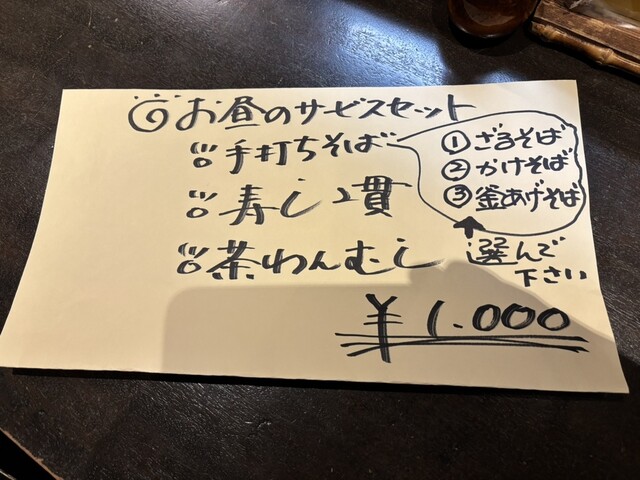 お昼のサービスセット
手打ちそば
① ざるそば
② かけそば
③ 釜あげそば
選んで
下さい
寿し2貫
茶わんむし
¥1.000